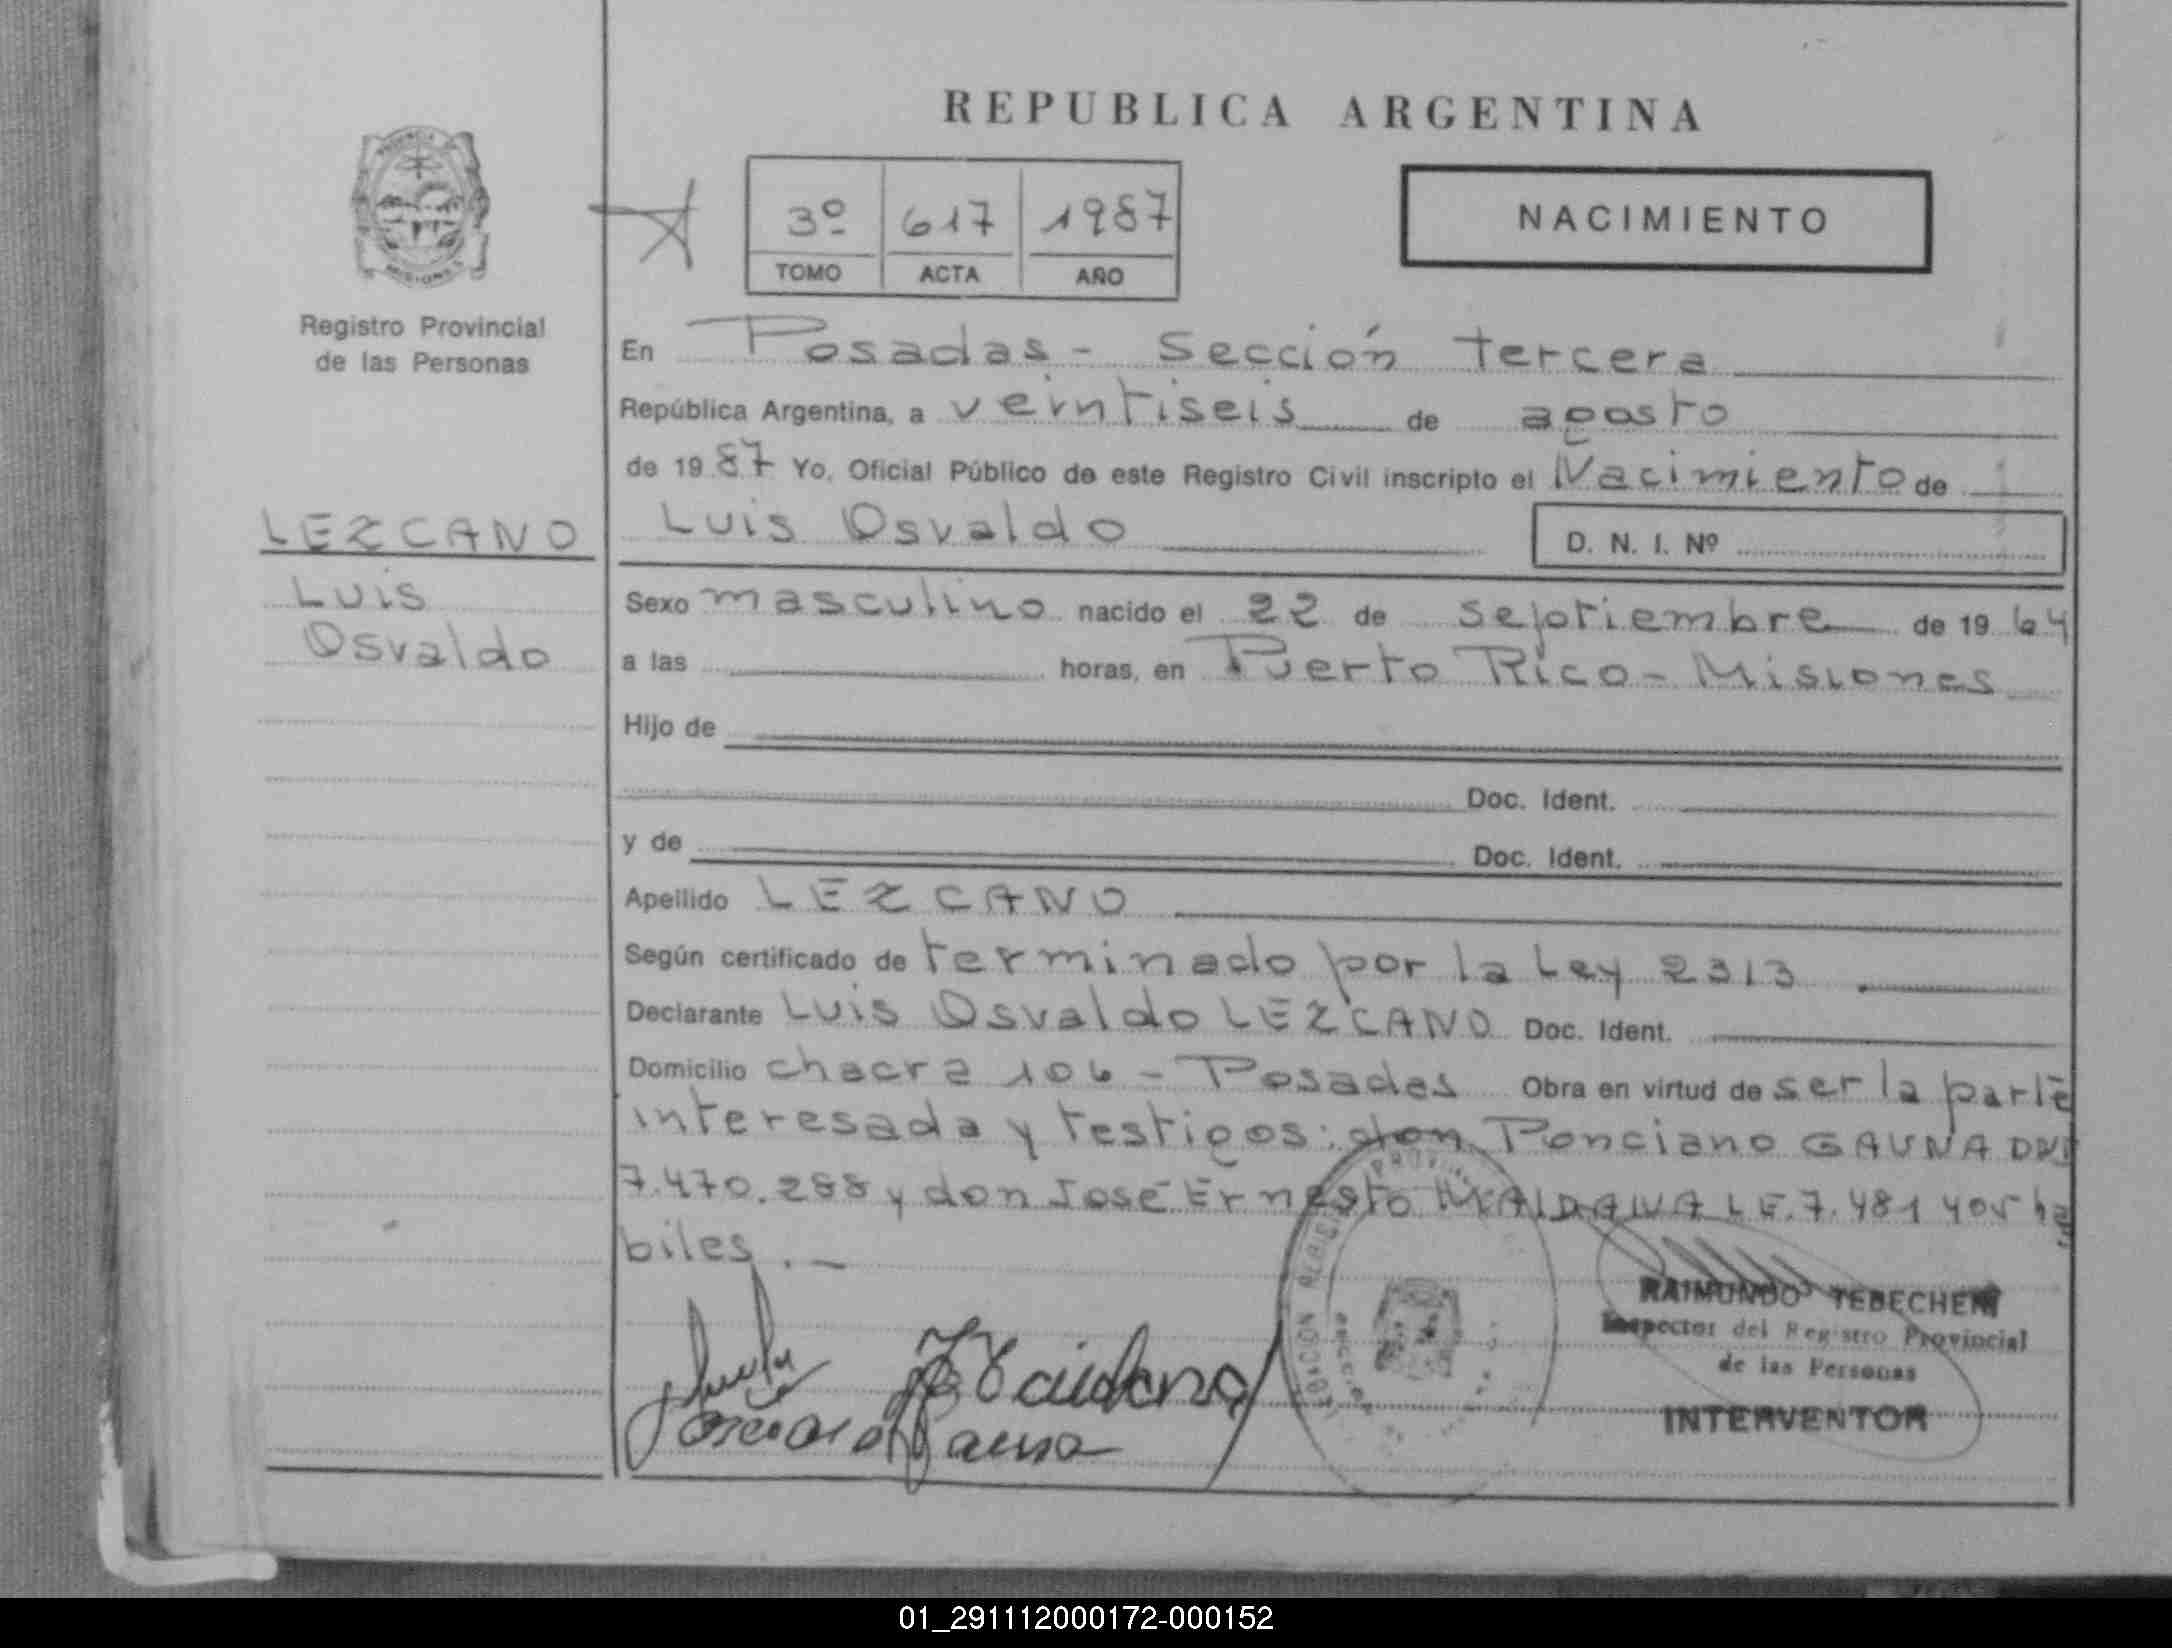 REPUBLICA ARGENTINA
PROVINCIA
MISIONES
Registro Provincial
de las Personas
3º 617 1987
TOMO ACTA AÑO
NACIMIENTO
En Posadas - Sección tercera
República Argentina, a veintiseis de agosto
de 1987 Yo, Oficial Público de este Registro Civil inscripto el Nacimiento de
LEZCANO
Luis Osvaldo
D. N. I. Nº
Luis
Osvaldo
Sexo masculino nacido el 22 de septiembre de 1964
a las horas, en Puerto Rico - Misiones
Hijo de
Doc. Ident.
y de Doc. Ident.
Apellido LEZCANO
Según certificado de terminado por la Ley 2313
Declarante Luis Osvaldo LEZCANO Doc. Ident.
Domicilio chacra 106 - Posadas Obra en virtud de ser la parte
interesada y testigos: don Ponciano GAUNA DNI
7.470.288 y don José Ernesto MAIDANA LE.7.481 405 ha
biles. -
RAIMUNDO TEBECHERI
Inspector del Registro Provincial
de las Personas
INTERVENTOR
01_291112000172-000152